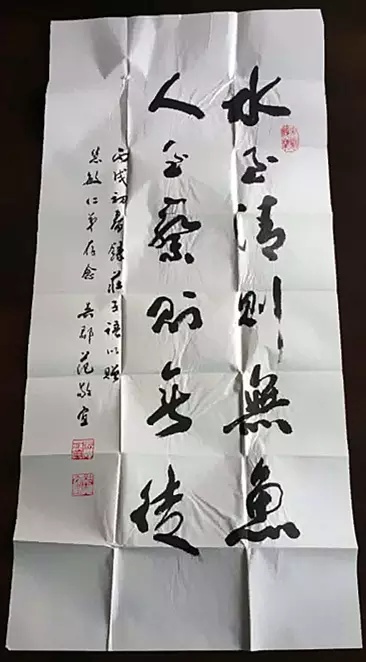 水至清則無魚
人至察則無徒
丙戌初春錄莊子語以贈
忠敏仁弟存念 吳郡范敬宜